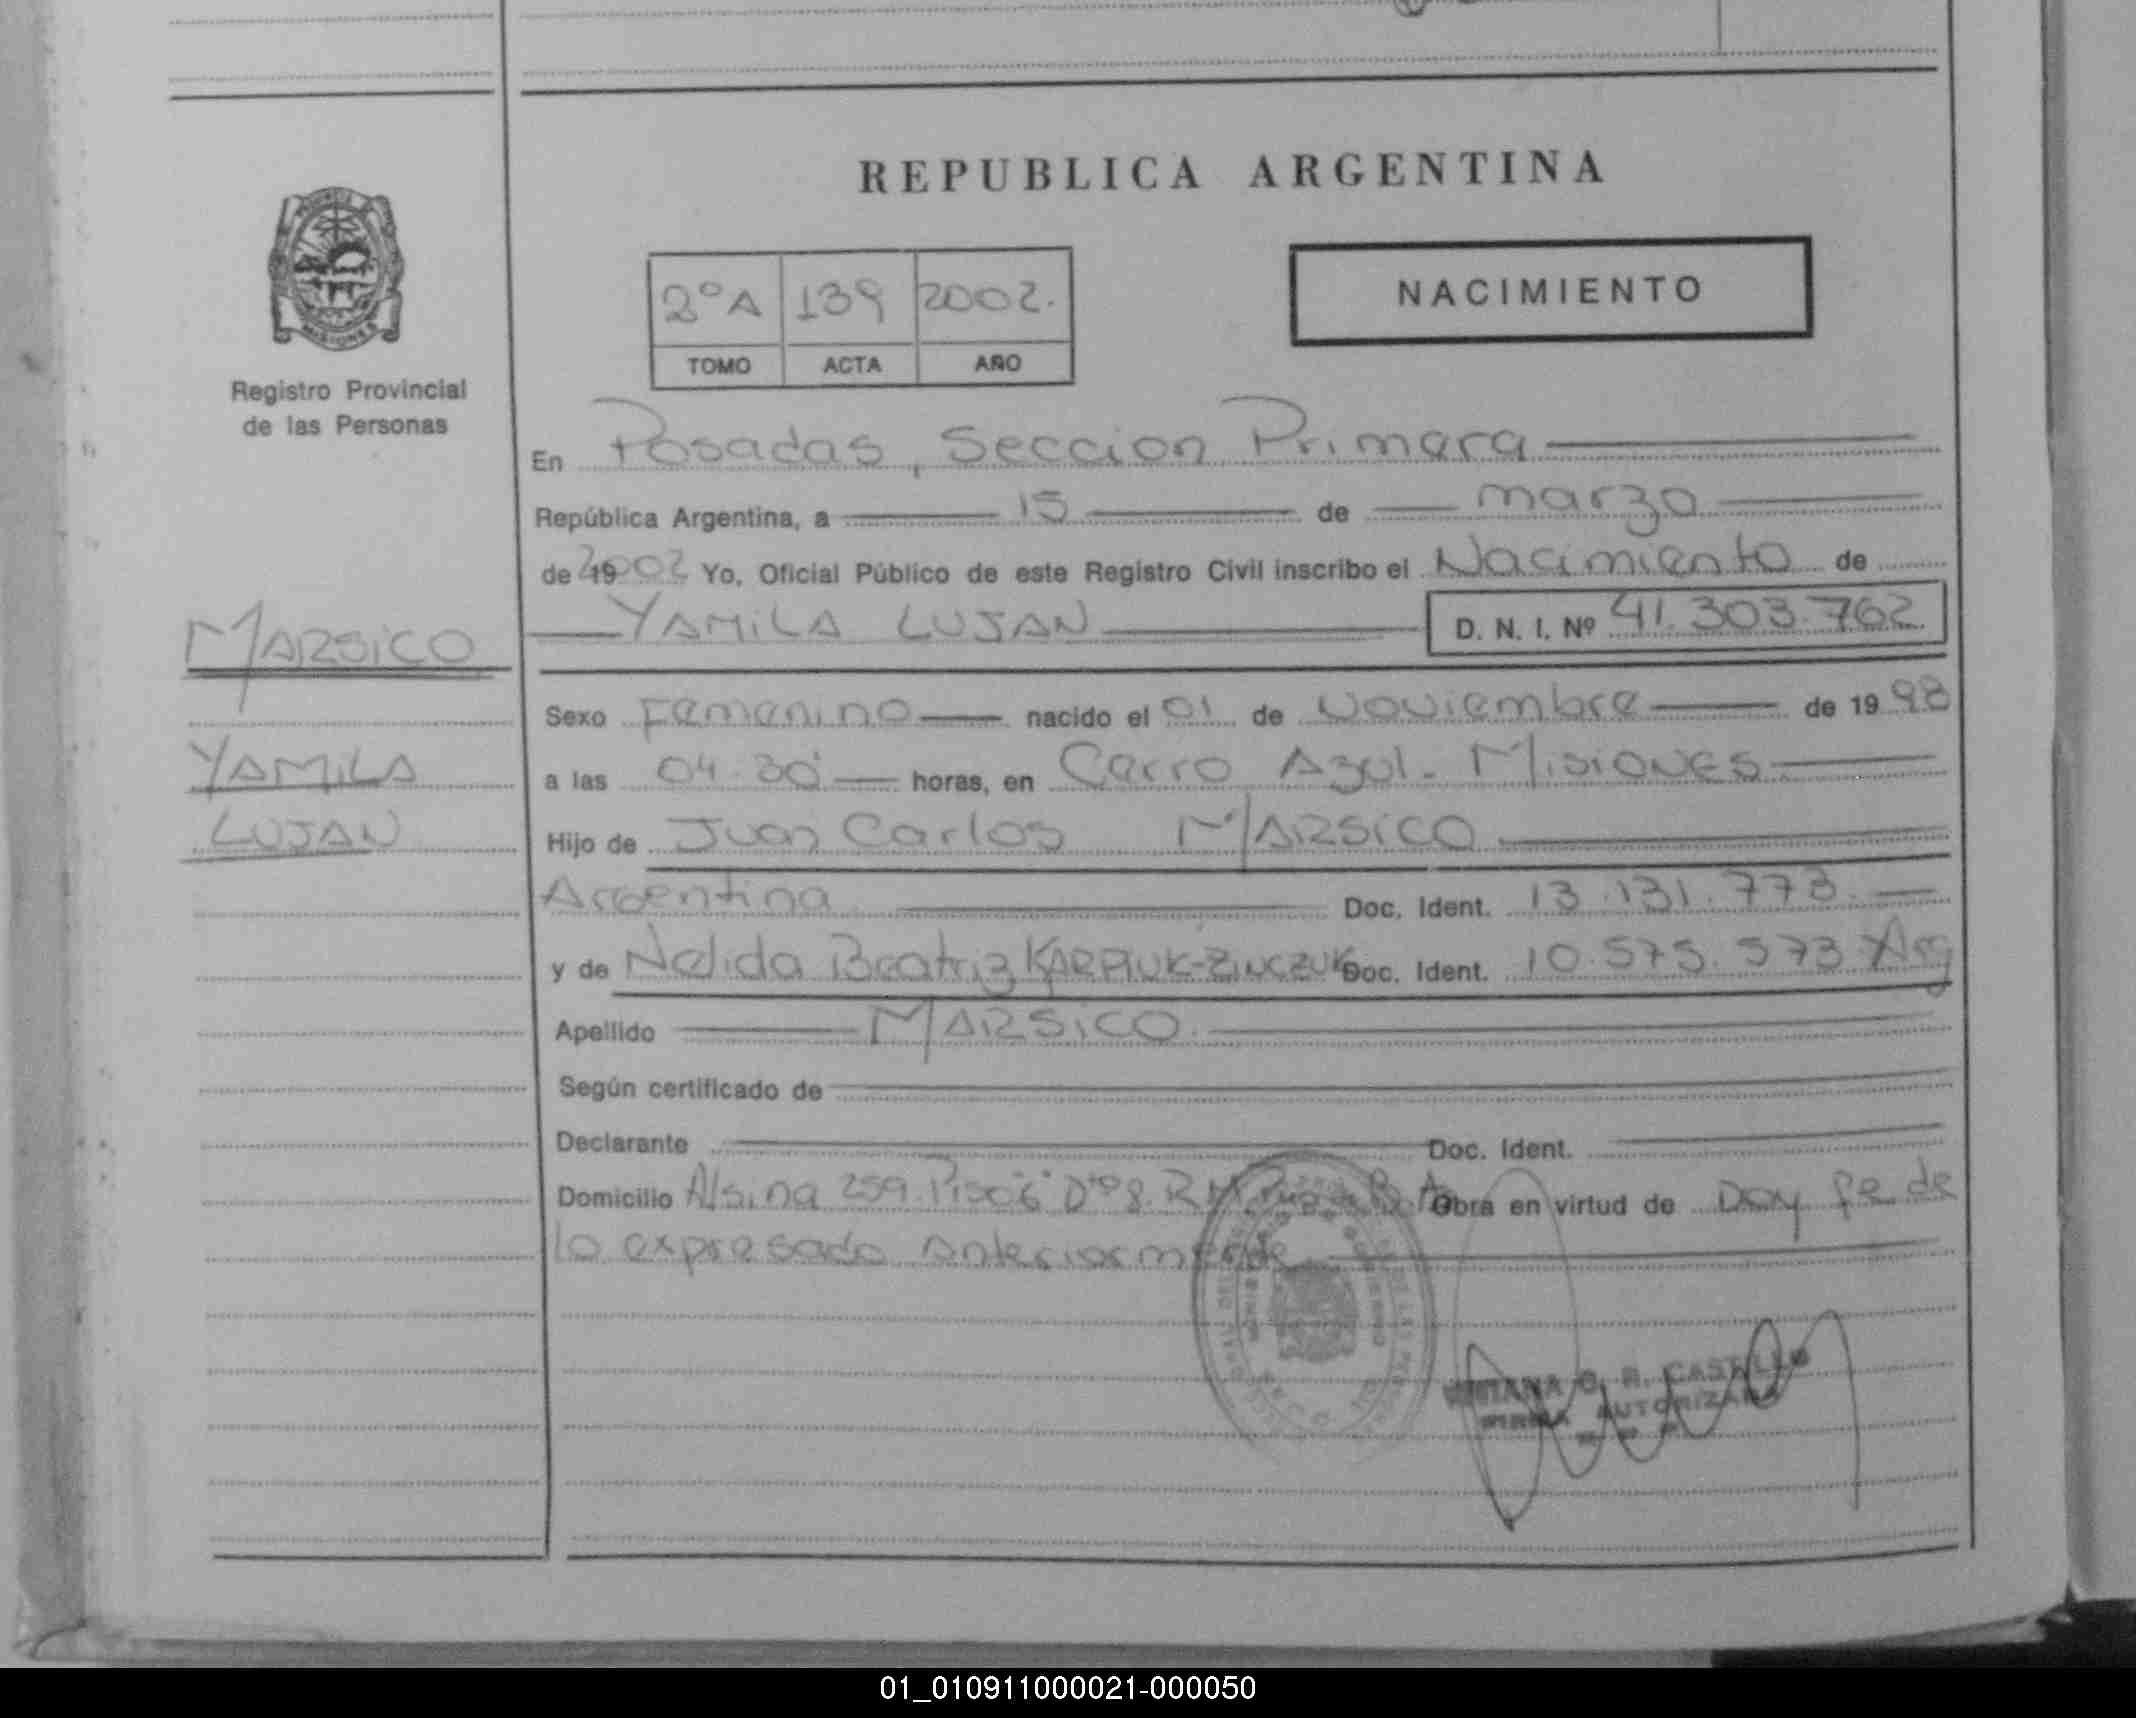 REPUBLICA ARGENTINA
NACIMIENTO
2º A 139 2002.
TOMO ACTA AÑO
MISIONES
Registro Provincial
de las Personas
En Posadas, Seccion Primera
República Argentina, a 15 de marzo
de 2002 Yo, Oficial Público de este Registro Civil inscribo el Nacimiento de
YAMILA LUJAN D. N. I. Nº 41.303.762
MARSICO
YAMILA
LUJAN
Sexo Femenino nacido el 01 de Noviembre de 1998
a las 04.30 horas, en Cerro Azul - Misiones
Hijo de Juan Carlos MARSICO
Argentina Doc. Ident. 13.131.773.
y de Nelida Beatriz KARPIUK-ZINCZUK Doc. Ident. 10.575.573 Arg
Apellido MARSICO
Según certificado de
Declarante Doc. Ident.
Domicilio Alsina 259. Piso 6 Dto 8. Obra en virtud de Doy fe de
lo expresado anteriormente
C. R. CASTILLO
FIRMA AUTORIZADA
01_010911000021-000050